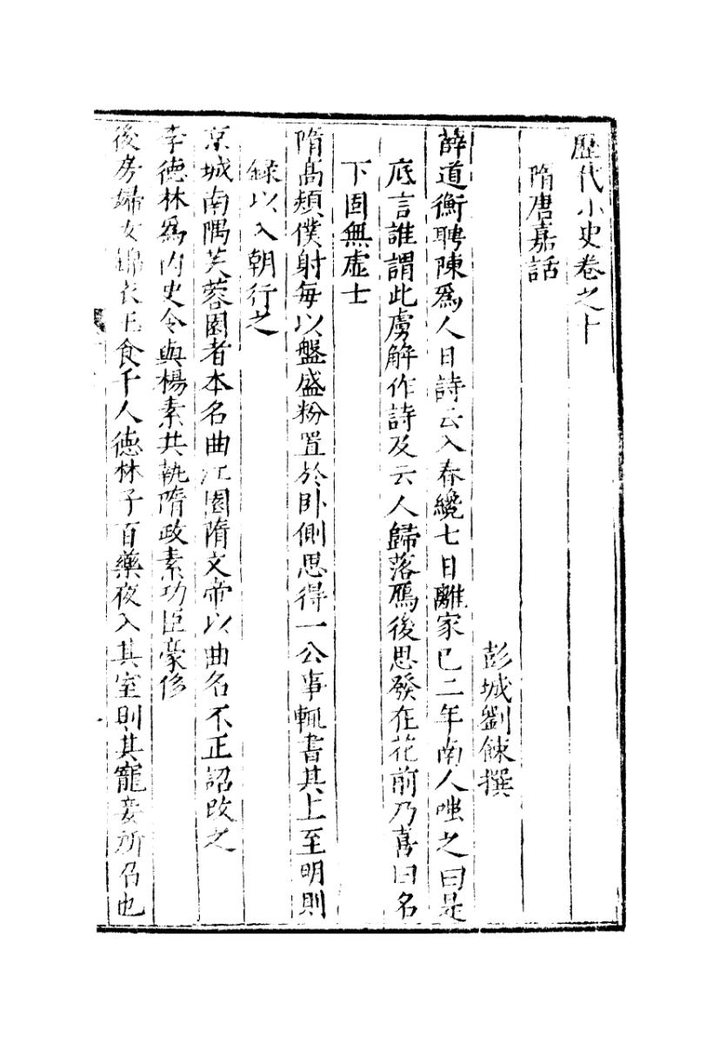 歷代小史卷之十
隋唐嘉話
彭城劉餗撰
薛道衡聘陳爲人日詩云入春纔七日離家已二年南人嗤之曰是
底言誰謂此虜解作詩及云人歸落鴈後思發在花前乃喜曰名
下固無虛士
隋髙熲僕射每以盤盛粉置於卧側思得一公事輒書其上至明則
録以入朝行之
京城南隅芙蓉園者本名曲江園隋文帝以曲名不正詔改之
李德林爲内史令與楊素共執隋政素功臣豪侈
後房婦女錦衣玉食千人德林子百藥夜入其室則其寵妾所召也